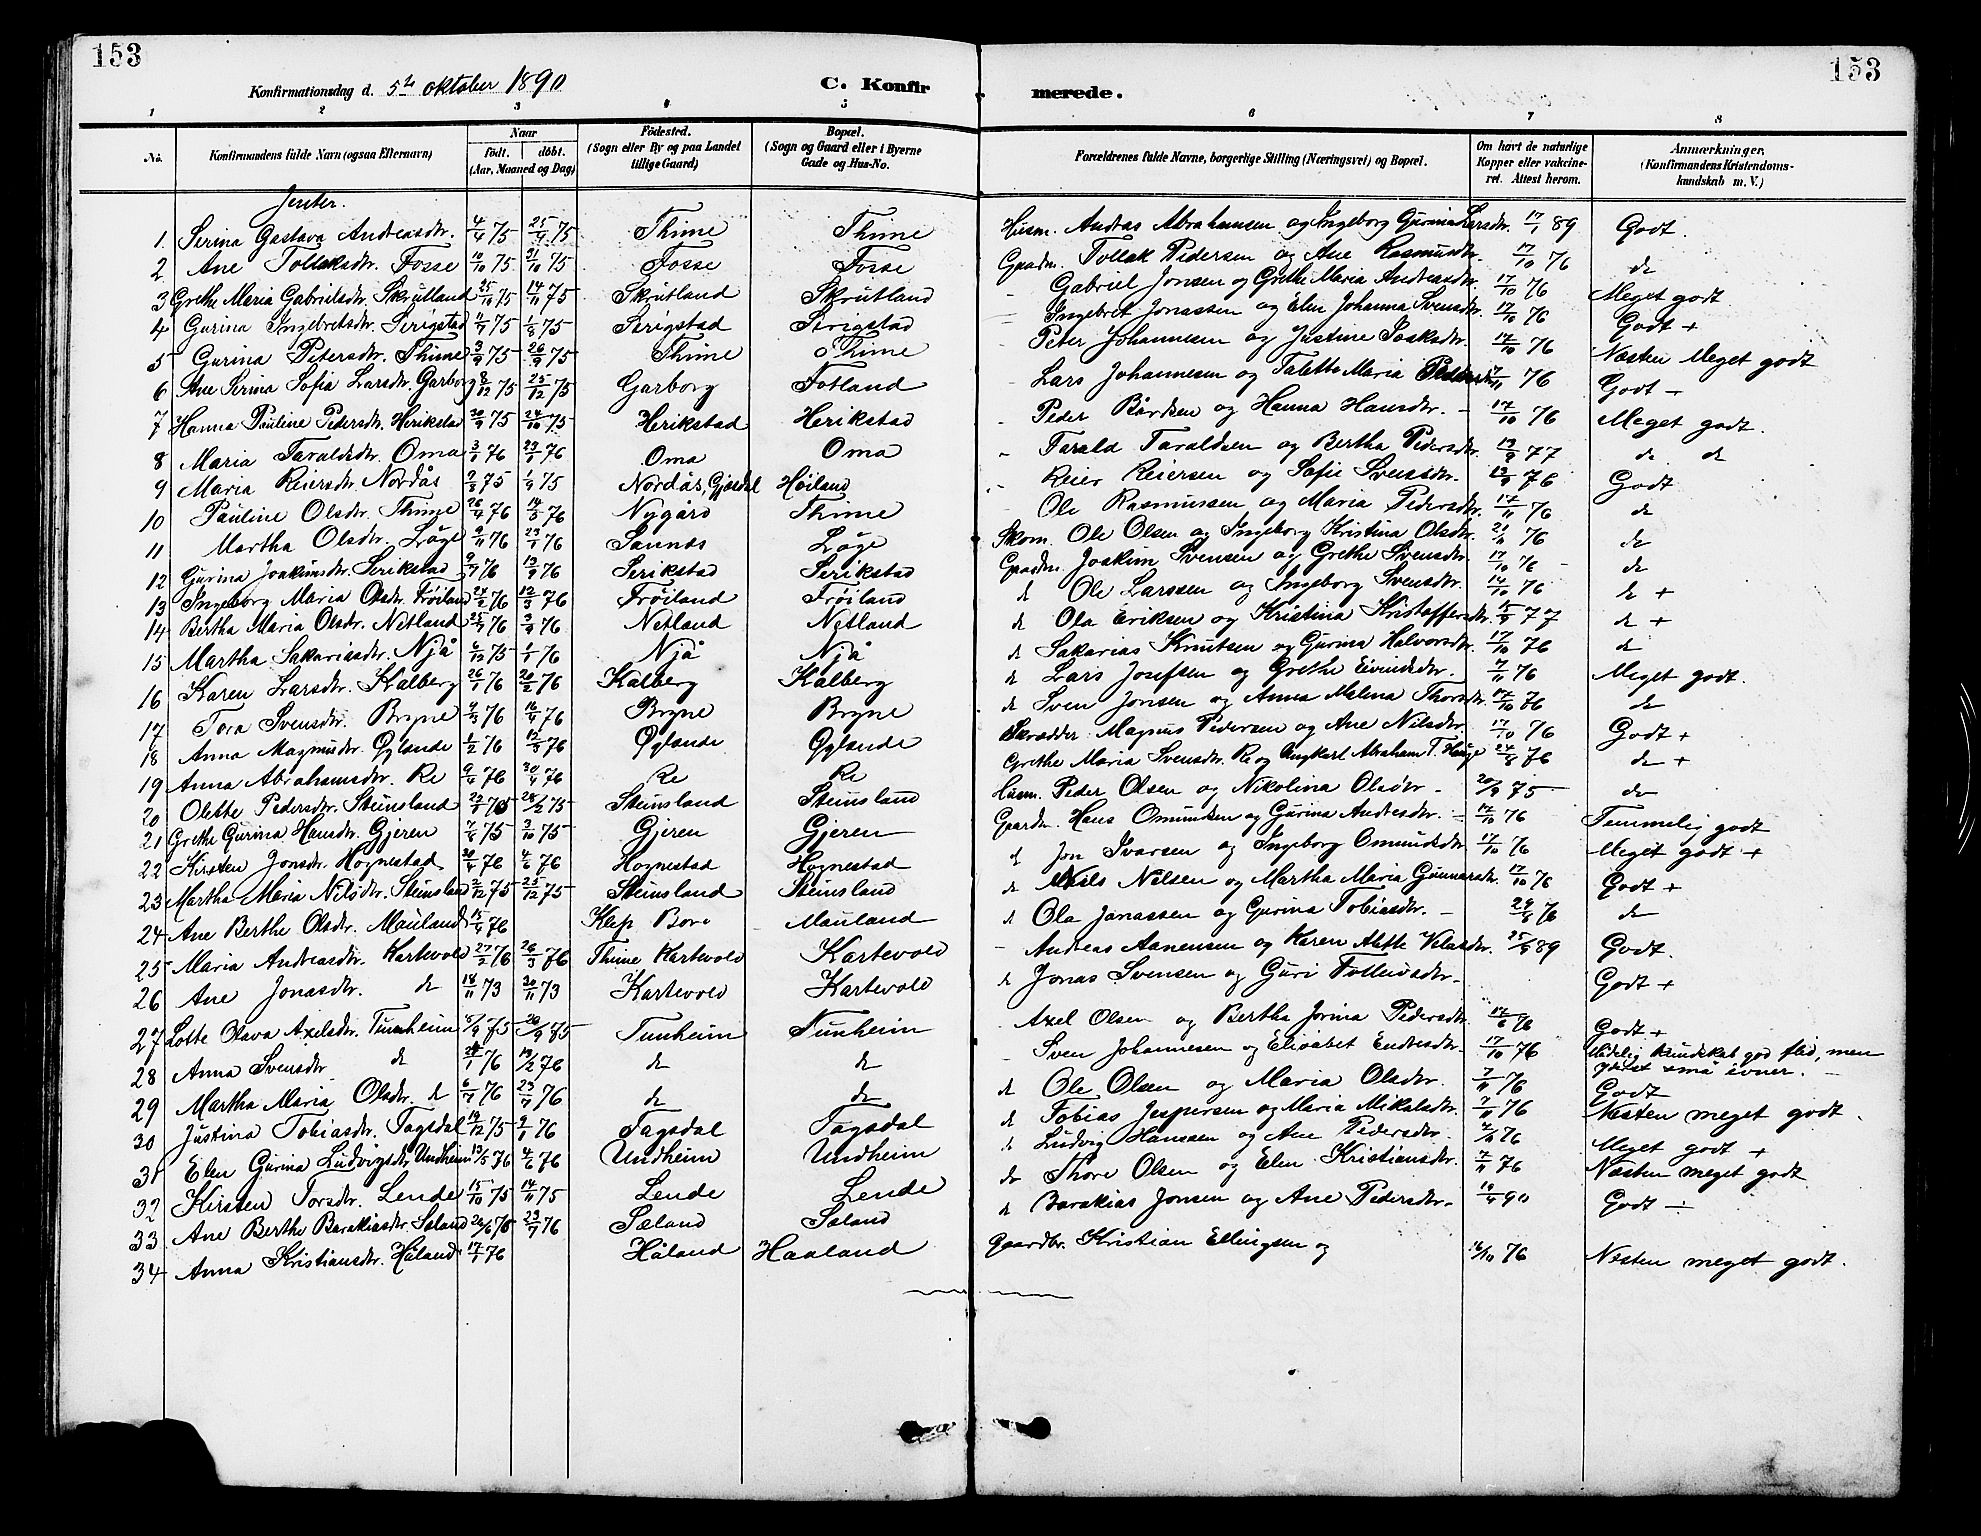 153
153
Konfirmationsdag d. 5te oktober 1890
C. Konfirmerede.
1 2 3 4 5 6 7 8
No. Konfirmandens fulde Navn (ogsaa Efternavn) Naar født. døbt. (Aar, Maaned og Dag) Födested. (Sogn eller By og paa Landet tillige Gaard) Bopæl. (Sogn og Gaard eller i Byerne Gade og Hus-No. Forældrenes fulde Navne, borgerlige Stilling (Næringsvei) og Bopæl. Om havt de naturlige Kopper eller vakcineret. Attest herom. Anmærkninger, (Konfirmandens Kristendomskundskab m. V.)
Jenter.
1. Serina Gustava Andreasdtr. 4/4 75 25/4 75 Thime Thime Husm. Andras Abrahamsen og Ingeborg Gurina Larsdtr. 17/1 89 Godt.
2 Ane Tollaksdtr. Fosse 10/10 75 31/10 75 Fosse Fosse Gaardm. Tollak Pedersen og Ane Rasmusdtr. 17/10 76 do
3 Grethe Maria Gabrielsdtr. Skrutland 25/10 75 14/11 75 Skrutland Skrutland - Gabriel Jonsen og Grethe Maria Andreasdtr. 17/10 76 Meget godt
4 Gurina Ingebretsdtr. Serigstad 11/7 75 1/8 75 Serigstad Serigstad - Ingebret Jonassen og Elen Johanna Svensdtr. 17/10 76 Godt +
5 Gurina Petersdtr. Thime 3/9 75 26/9 75 Thime Thime - Peter Johannesen og Justine Isaksdtr. 17/10 76 Næsten Meget godt
6 Ane Serina Sofia Larsdtr. Garborg 8/12 75 25/12 75 Garborg Fotland - Lars Johannesen og Taletta Maria 7/11 76 Godt -
7 Hanna Pauline Pedersdtr. Herikstad 20/9 75 24/10 75 Herikstad Herikstad - Peder Bårdsen og Hanna Hansdtr. - 17/10 76 Meget godt.
8 Maria Taraldsdtr. Oma 3/1 76 23/1 76 Oma Oma - Tarald Taraldsen og Bertha Pedersdtr. 13/9 77 do do
9 Maria Reiersdtr. Nordås 9/8 75 1/9 75 Nordås, Gjesdal Höiland - Reier Reiersen og Sofie Svensdtr. 13/9 76 Godt
10 Pauline Olsdtr. Thime 26/4 76 14/5 76 Nygård Thime - Ole Rasmussen og Maria Pedersdtr. 17/11 76 do
11 Martha Olsdtr. Löge 9/11 76 23/1 76 Sannas Löge Skom. Ole Olsen og Ingeborg Kristina Olsdtr. 21/11 76 do
12 Gurina Joakimsdtr. Serikstad 9/7 76 13/9 76 Serikstad Serikstad Gaardm. Joakim Svensen og Grethe Svensdtr. 17/10 76 - do
13 Ingeborg Maria Olsdtr. Fröiland 24/2 76 12/3 76 Fröiland Fröiland d Ole Larssen og Ingeborg Svensdtr. 14/10 76 do +
14 Bertha Maria Olsdtr. Netland 25/7 76 3/9 76 Netland Netland d Ola Eriksen og Kristina Kristoffersdtr. 15/9 77 do +
15 Martha Sakariasdtr. Njå 6/12 75 1/1 76 Njå Njå d Sakarias Knutsen og Gurina Halvorsdtr. 17/10 76 do
16 Karen Larsdtr. Kalberg 26/1 76 20/2 76 Kalberg Kalberg d Lars Josefsen og Grethe Eivindsdtr. 7/11 76 Meget godt.
17 Tora Svensdtr. Bryne 4/3 76 16/4 76 Bryne Bryne d Sven Jonsen og Anna Malena Thorsdtr. 17/10 76 do
18 Anna Magnusdtr. Öglænde 1/2 76 12/3 76 Öglænde Öglænde Skrædder Magnus Pedersen og Ane Nilsdtr. 17/10 76 Godt +
19 Anna Abrahamsdtr. Re 9/4 76 30/4 76 Re Re Grethe Maria Svensdtr. Re og Ungkarl Abraham T. Hauge 24/8 76 do +
20 Olette Pedersdtr. Steinsland 22/1 75 28/2 75 Steinsland Steinsland Husm. Peder Olsen og Nikolina Olsdtr - 20/9 75 do
21 Grethe Gurina Hansdtr. Gjeren 7/6 75 3/10 75 Gjeren Gjeren Gaardm. Hans Omundsen og Gurina Andresdtr. - 17/10 76 Temmelig godt
22 Kirsten Jonsdtr. Hognestad 30/4 76 4/6 76 Hognestad Hognestad d Jon Ivarsen og Ingeborg Omundsdtr 17/10 76 Meget godt +
23 Martha Maria Nilsdtr. Steinsland 2/12 75 25/12 75 Steinsland Steinsland d Niels Nilsen og Martha Maria Gunnarsdtr. 17/10 76 Godt +
24 Ane Berthe Olsdtr. Mauland 15/4 76 Klep Bore Mauland d Ola Jonassen og Gurina Tobiasdtr. - 29/8 76 do
25 Maria Andreasdtr. Kartevold 27/2 76 26/3 76 Thime Kartevold Kartevold - Andreas Aanensen og Karen Alette Velasdtr. 25/9 89 Godt.
26 Ane Jonasdtr. do 18/11 73 30/11 73 Kartevold Kartevold d Jonas Svensen og Guri Tollevsdtr. Godt +
27 Lotte Olava Axelsdtr. Tunheim 5/9 75 26/9 75 Tunheim Tunheim - Axel Olsen og Bertha Jorina Pedersdtr. 17/6 76 Godt +
28 Anna Svensdtr do 21/1 76 13/2 76 do do - Sven Johannesen og Elisabet Endresdtr. 17/10 76 Mådelig kundskab god flid, men små evner. -
29 Martha Maria Olsdtr. do 6/7 76 23/7 76 do do d Ole Olsen og Maria Olsdtr. 7/11 76 Godt
30 Justina Tobiasdtr. Tagsdal 19/12 75 9/1 76 Tagsdal Tagsdal d Tobias Jespersen og Maria Mikalsdtr. 7/11 76 Næsten meget godt.
31 Elen Gurina Ludvigsdtr. Undheim 13/5 76 4/6 76 Undheim Undheim d Ludvig Hanssen og Ane Pedersdtr. 7/11 76 Meget godt +
32 Kirsten Torsdtr. Lende 15/10 75 14/11 75 Lende Lende do Thore Olsen og Elen Kristiansdtr. 7/11 76 Næsten meget godt
33 Ane Berthe Barakiasdtr Sæland 26/6 76 23/7 76 Sæland Sæland d Barakias Jonsen og Ane Pedersdtr. 19/4 90 Godt ÷
34 Anna Kristiansdtr. Håland 17/1 76 Håland Haaland Gaardbr. Kristian Ellingsen og 16/10 76 Næsten meget godt.